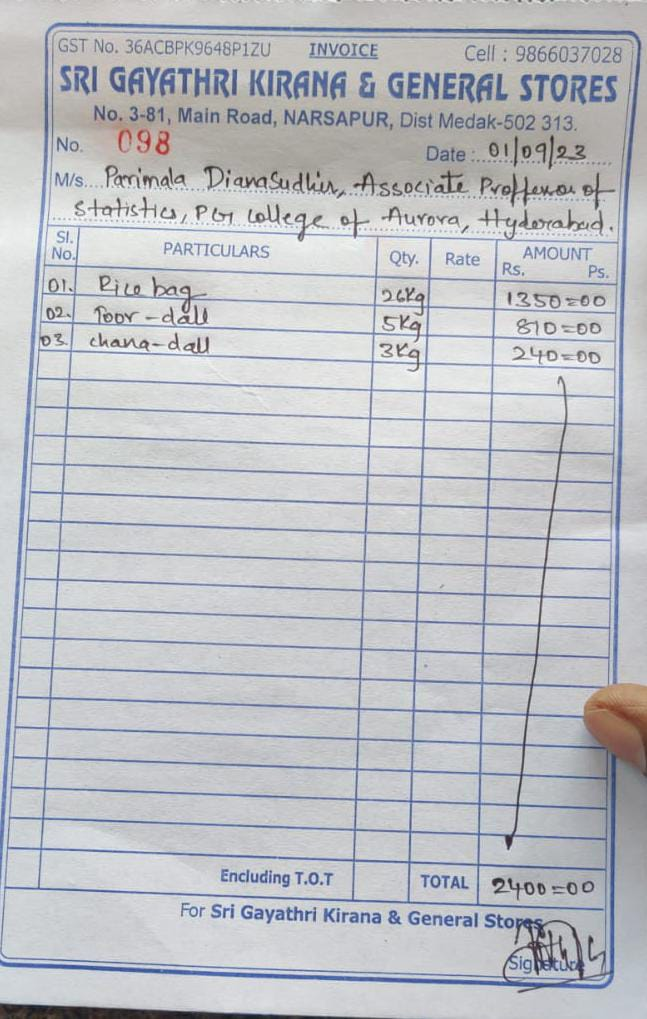 GST No. 36ACBPK9648P1ZU INVOICE Cell : 9866037028
SRI GAYATHRI KIRANA & GENERAL STORES
No. 3-81, Main Road, NARSAPUR, Dist Medak-502 313.
No. 098 Date : 01/09/23
M/s. Parimala DianaSudhir, Associate Proffenor of
Statistics, PG college of Aurora, Hyderabad.
Sl. No. PARTICULARS Qty. Rate AMOUNT Rs. Ps.
01. Rice bag 26Kg 1350=00
02. Toor-dall 5Kg 810=00
03. chana-dall 3Kg 240=00
Encluding T.O.T TOTAL 2400=00
For Sri Gayathri Kirana & General Stores
Signature